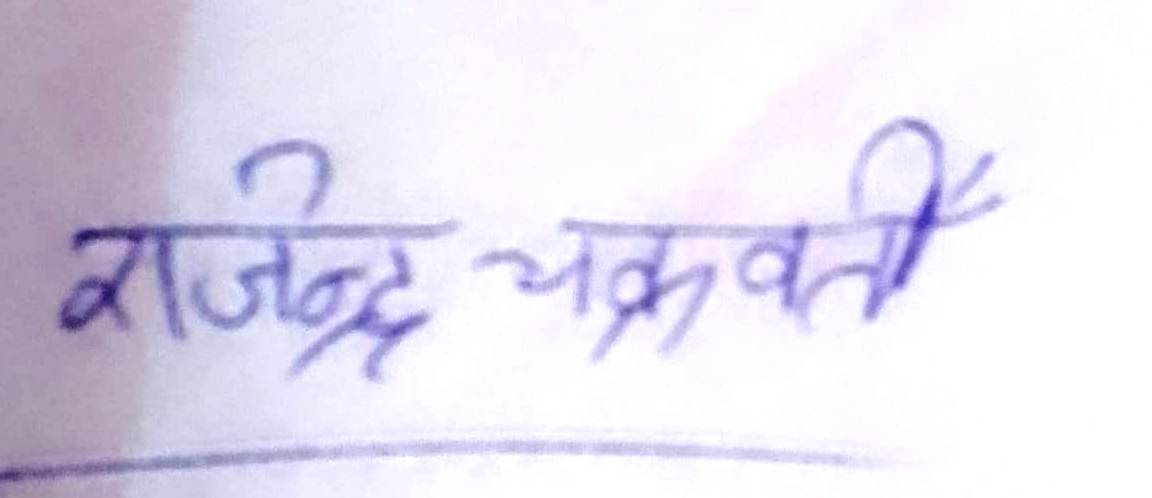 राजेन्द्र चक्रवर्ती